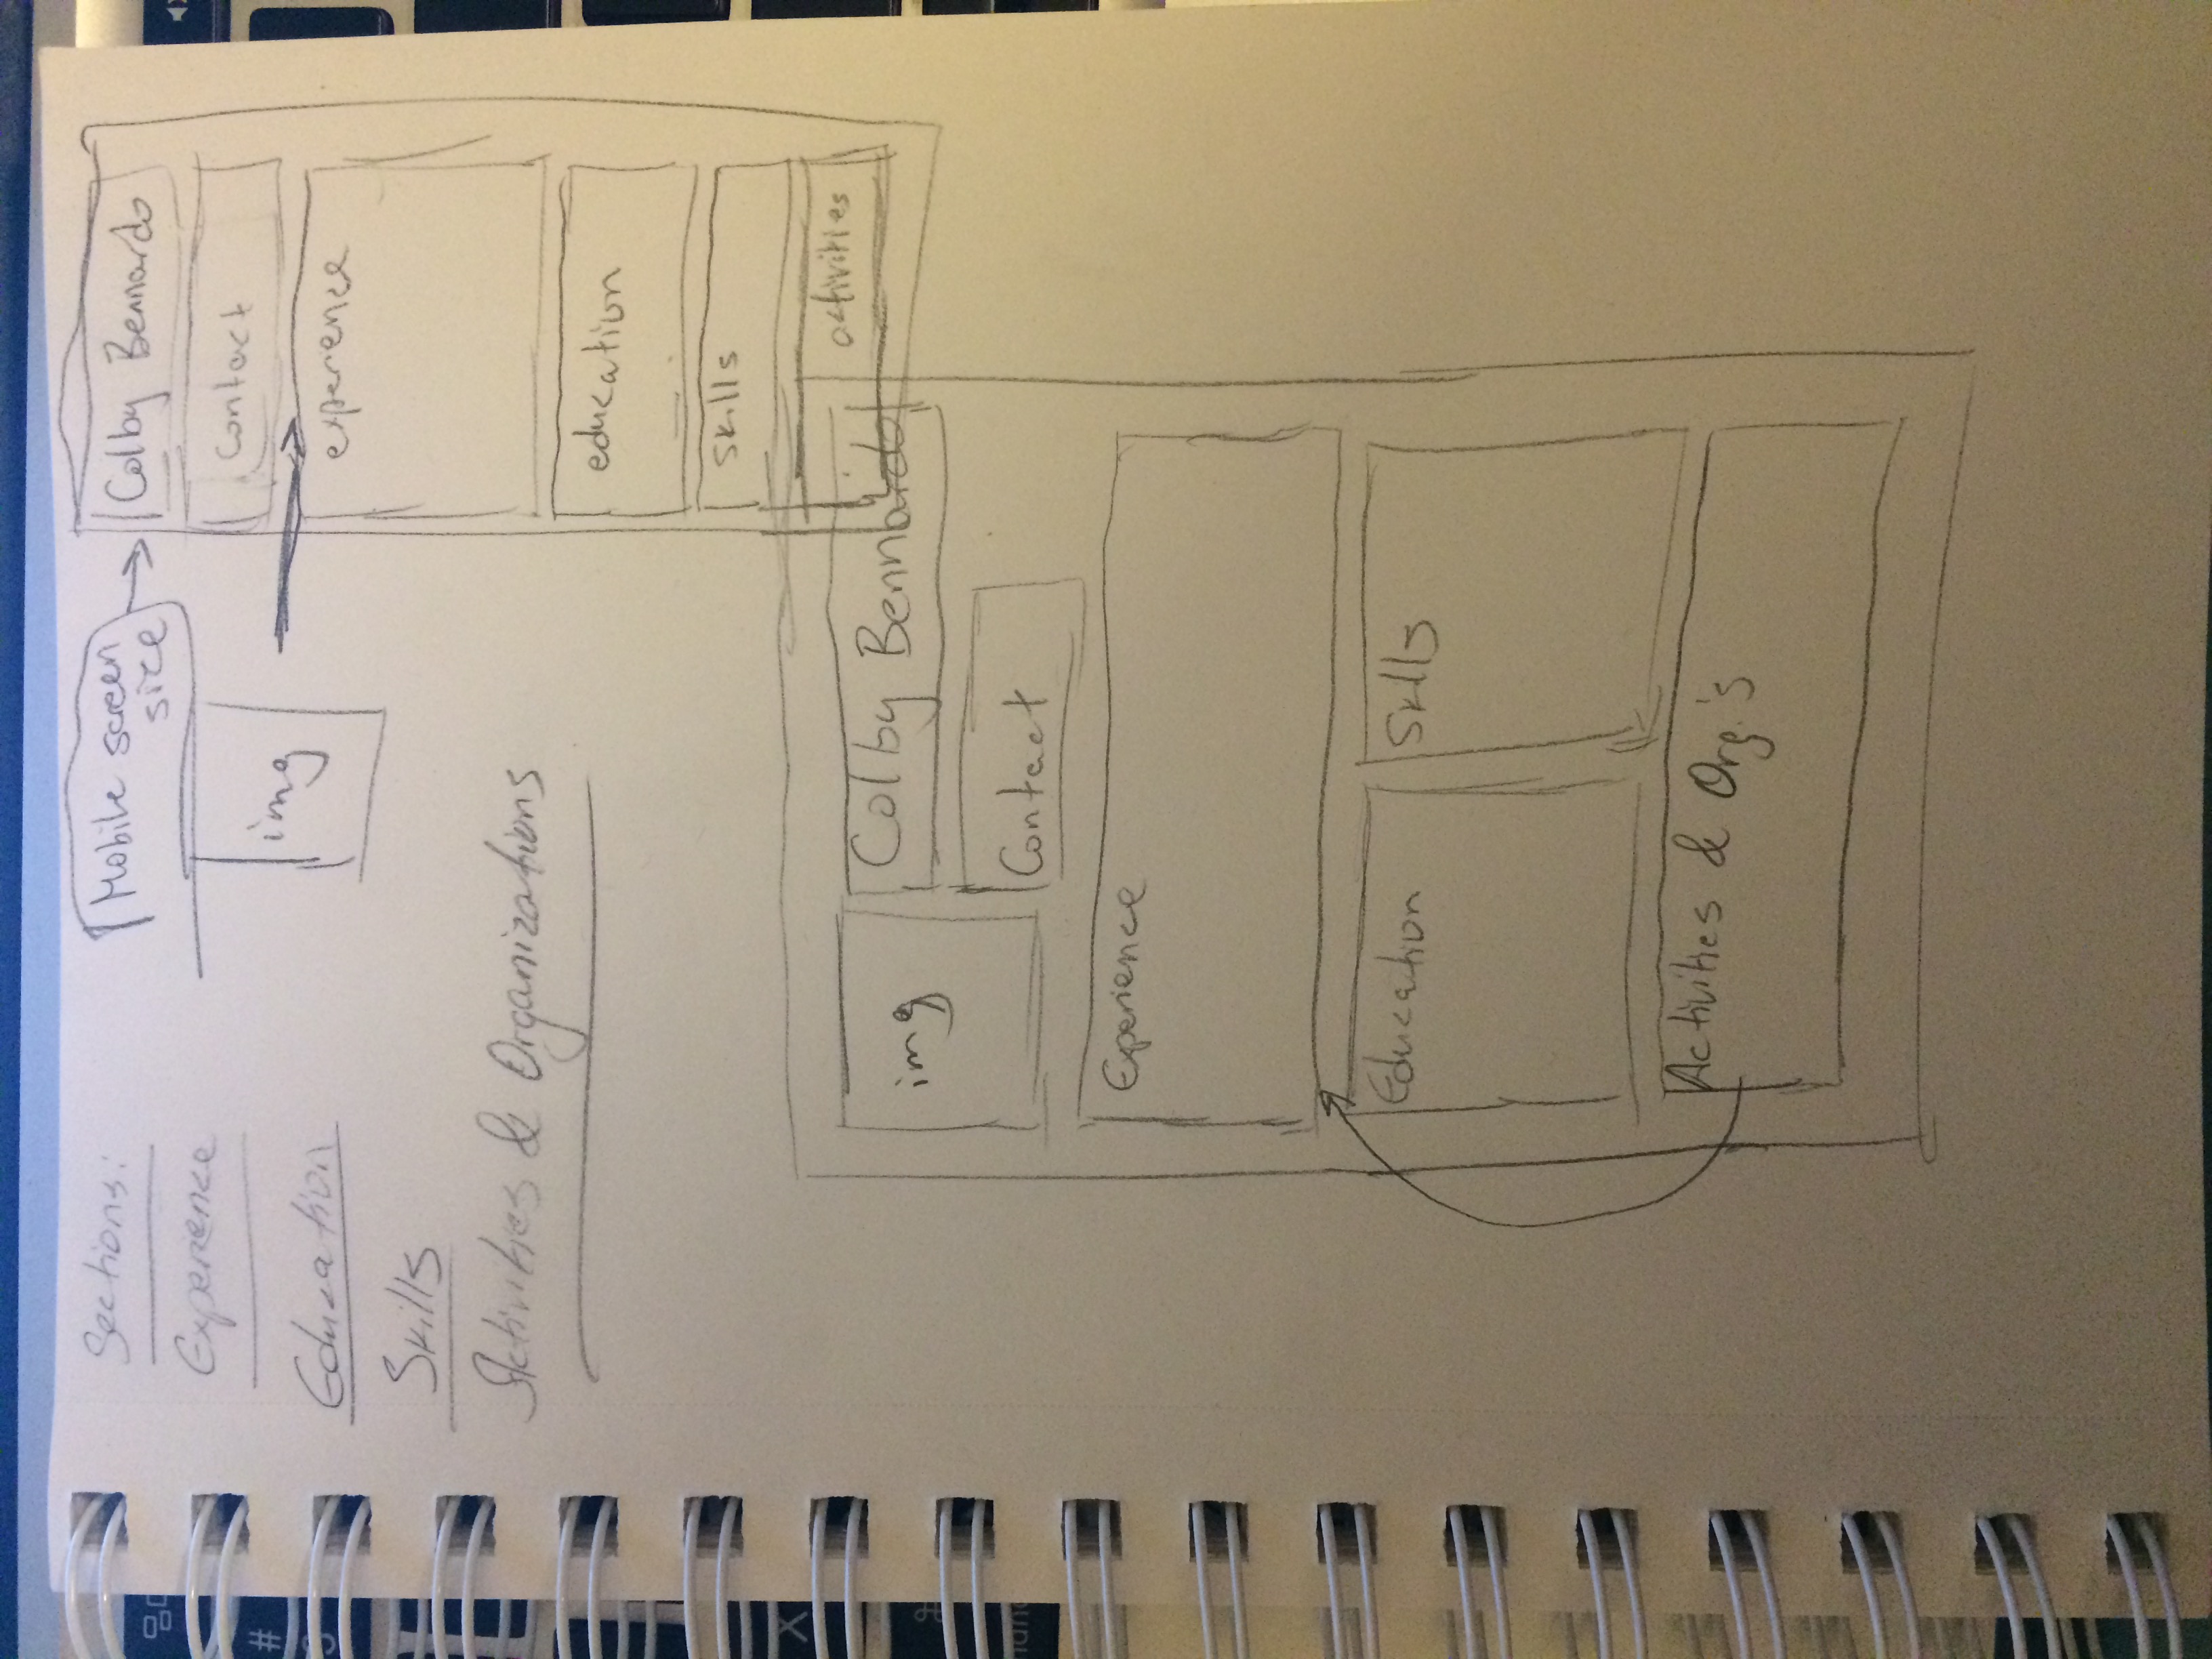 Sections:
Experience
Education
Skills
Activities & Organizations
Mobile screen
size
img
Colby Bennardo
Contact
experience
education
skills
activities
img
Colby Bennardo
Contact
Experience
Education
Skills
Activities & Org.'s
#
3
X
⌘